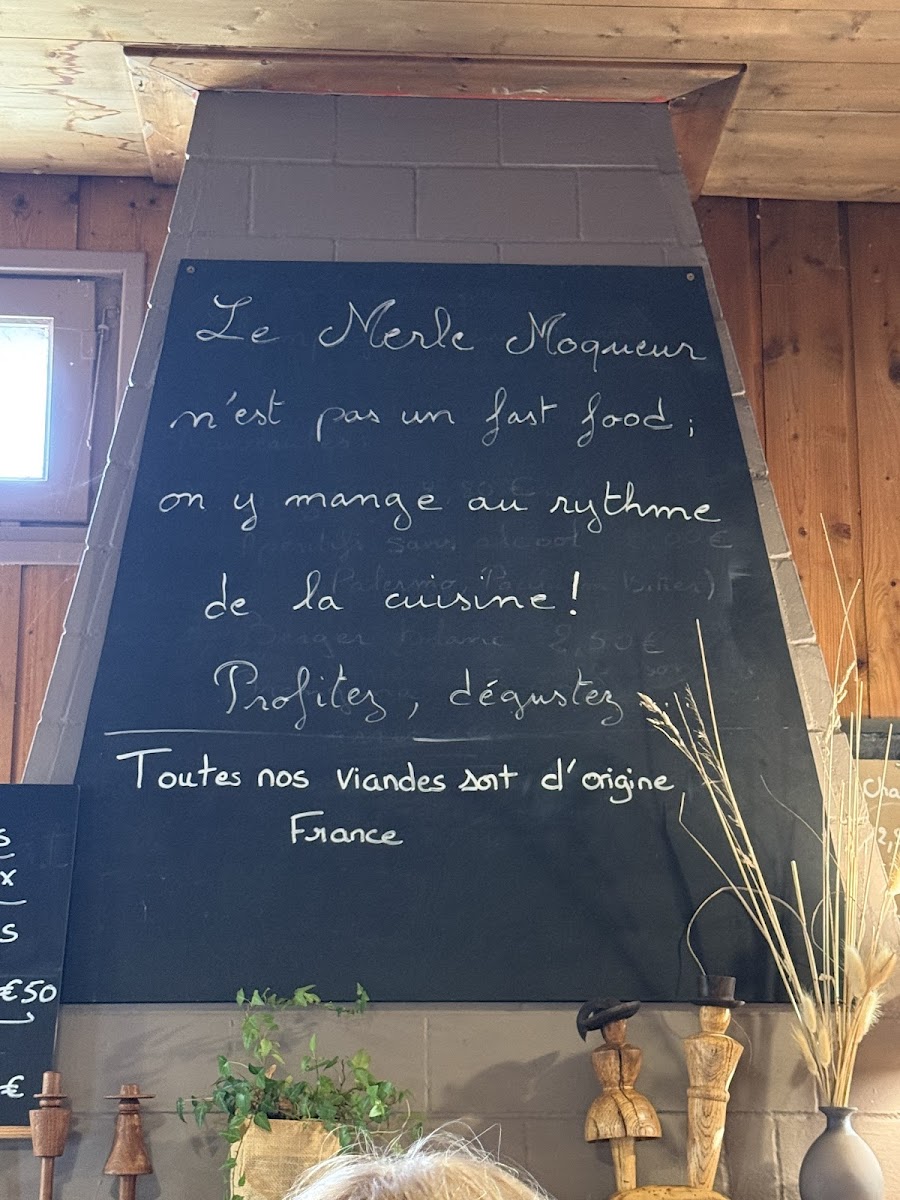 Le Merle Moqueur
n'est pas un fast food ;
on y mange au rythme
de la cuisine !
Profitez, dégustez ...
Toutes nos viandes sont d'origine
France
s
x
s
€50
€
Cha